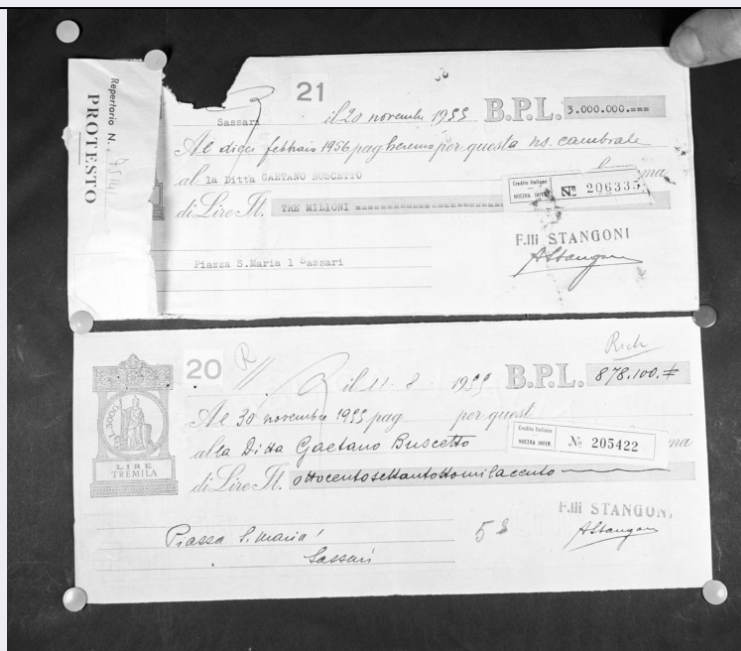 Repertorio N.
PROTESTO
21
Sassari il 20 novembre 1955 B.P.L. 3.000.000.===
Al dieci febbraio 1956 pagheremo per questa ns. cambiale
al la Ditta GAETANO BUSCETTO
Credito Italiano
NOCERA INFER. Nº 206335
di Lire It. TRE MILIONI
F.lli STANGONI
AStangoni
Piazza S.Maria 1 Sassari
20 R
Rich
il 11. 8. 1955 B.P.L. 878.100.#
Al 30 novembre 1955 pag per quest
alla Ditta Gaetano Buscetto
Credito Italiano
NOCERA INFER. Nº 205422
ma
di Lire It. ottocentosettantottomilacento
L. 3000
LIRE
TREMILA
F.lli STANGONI
AStangoni
Piazza S. Maria 1
Sassari